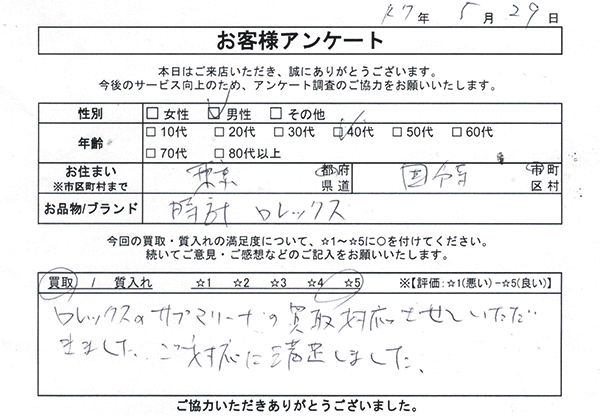 R7年 5月29日
お客様アンケート
本日はご来店いただき、誠にありがとうございます。
今後のサービス向上のため、アンケート調査のご協力をお願いいたします。
性別 □ 女性 ☑ 男性 □ その他
年齢 □ 10代 □ 20代 □ 30代 ☑ 40代 □ 50代 □ 60代
□ 70代 □ 80代以上
お住まい ※市区町村まで 東京 都府県道 国分寺 市町区村
お品物/ブランド 時計 ロレックス
今回の買取・質入れの満足度について、☆1～☆5に○を付けてください。
続いてご意見・ご感想などのご記入をお願いいたします。
買取 / 質入れ ☆1 ☆2 ☆3 ☆4 ☆5 ※【評価:☆1(悪い)−☆5(良い)】
ロレックスのサブマリーナの買取対応させていただ
きました。ご対応に満足しました。
ご協力いただきありがとうございました。